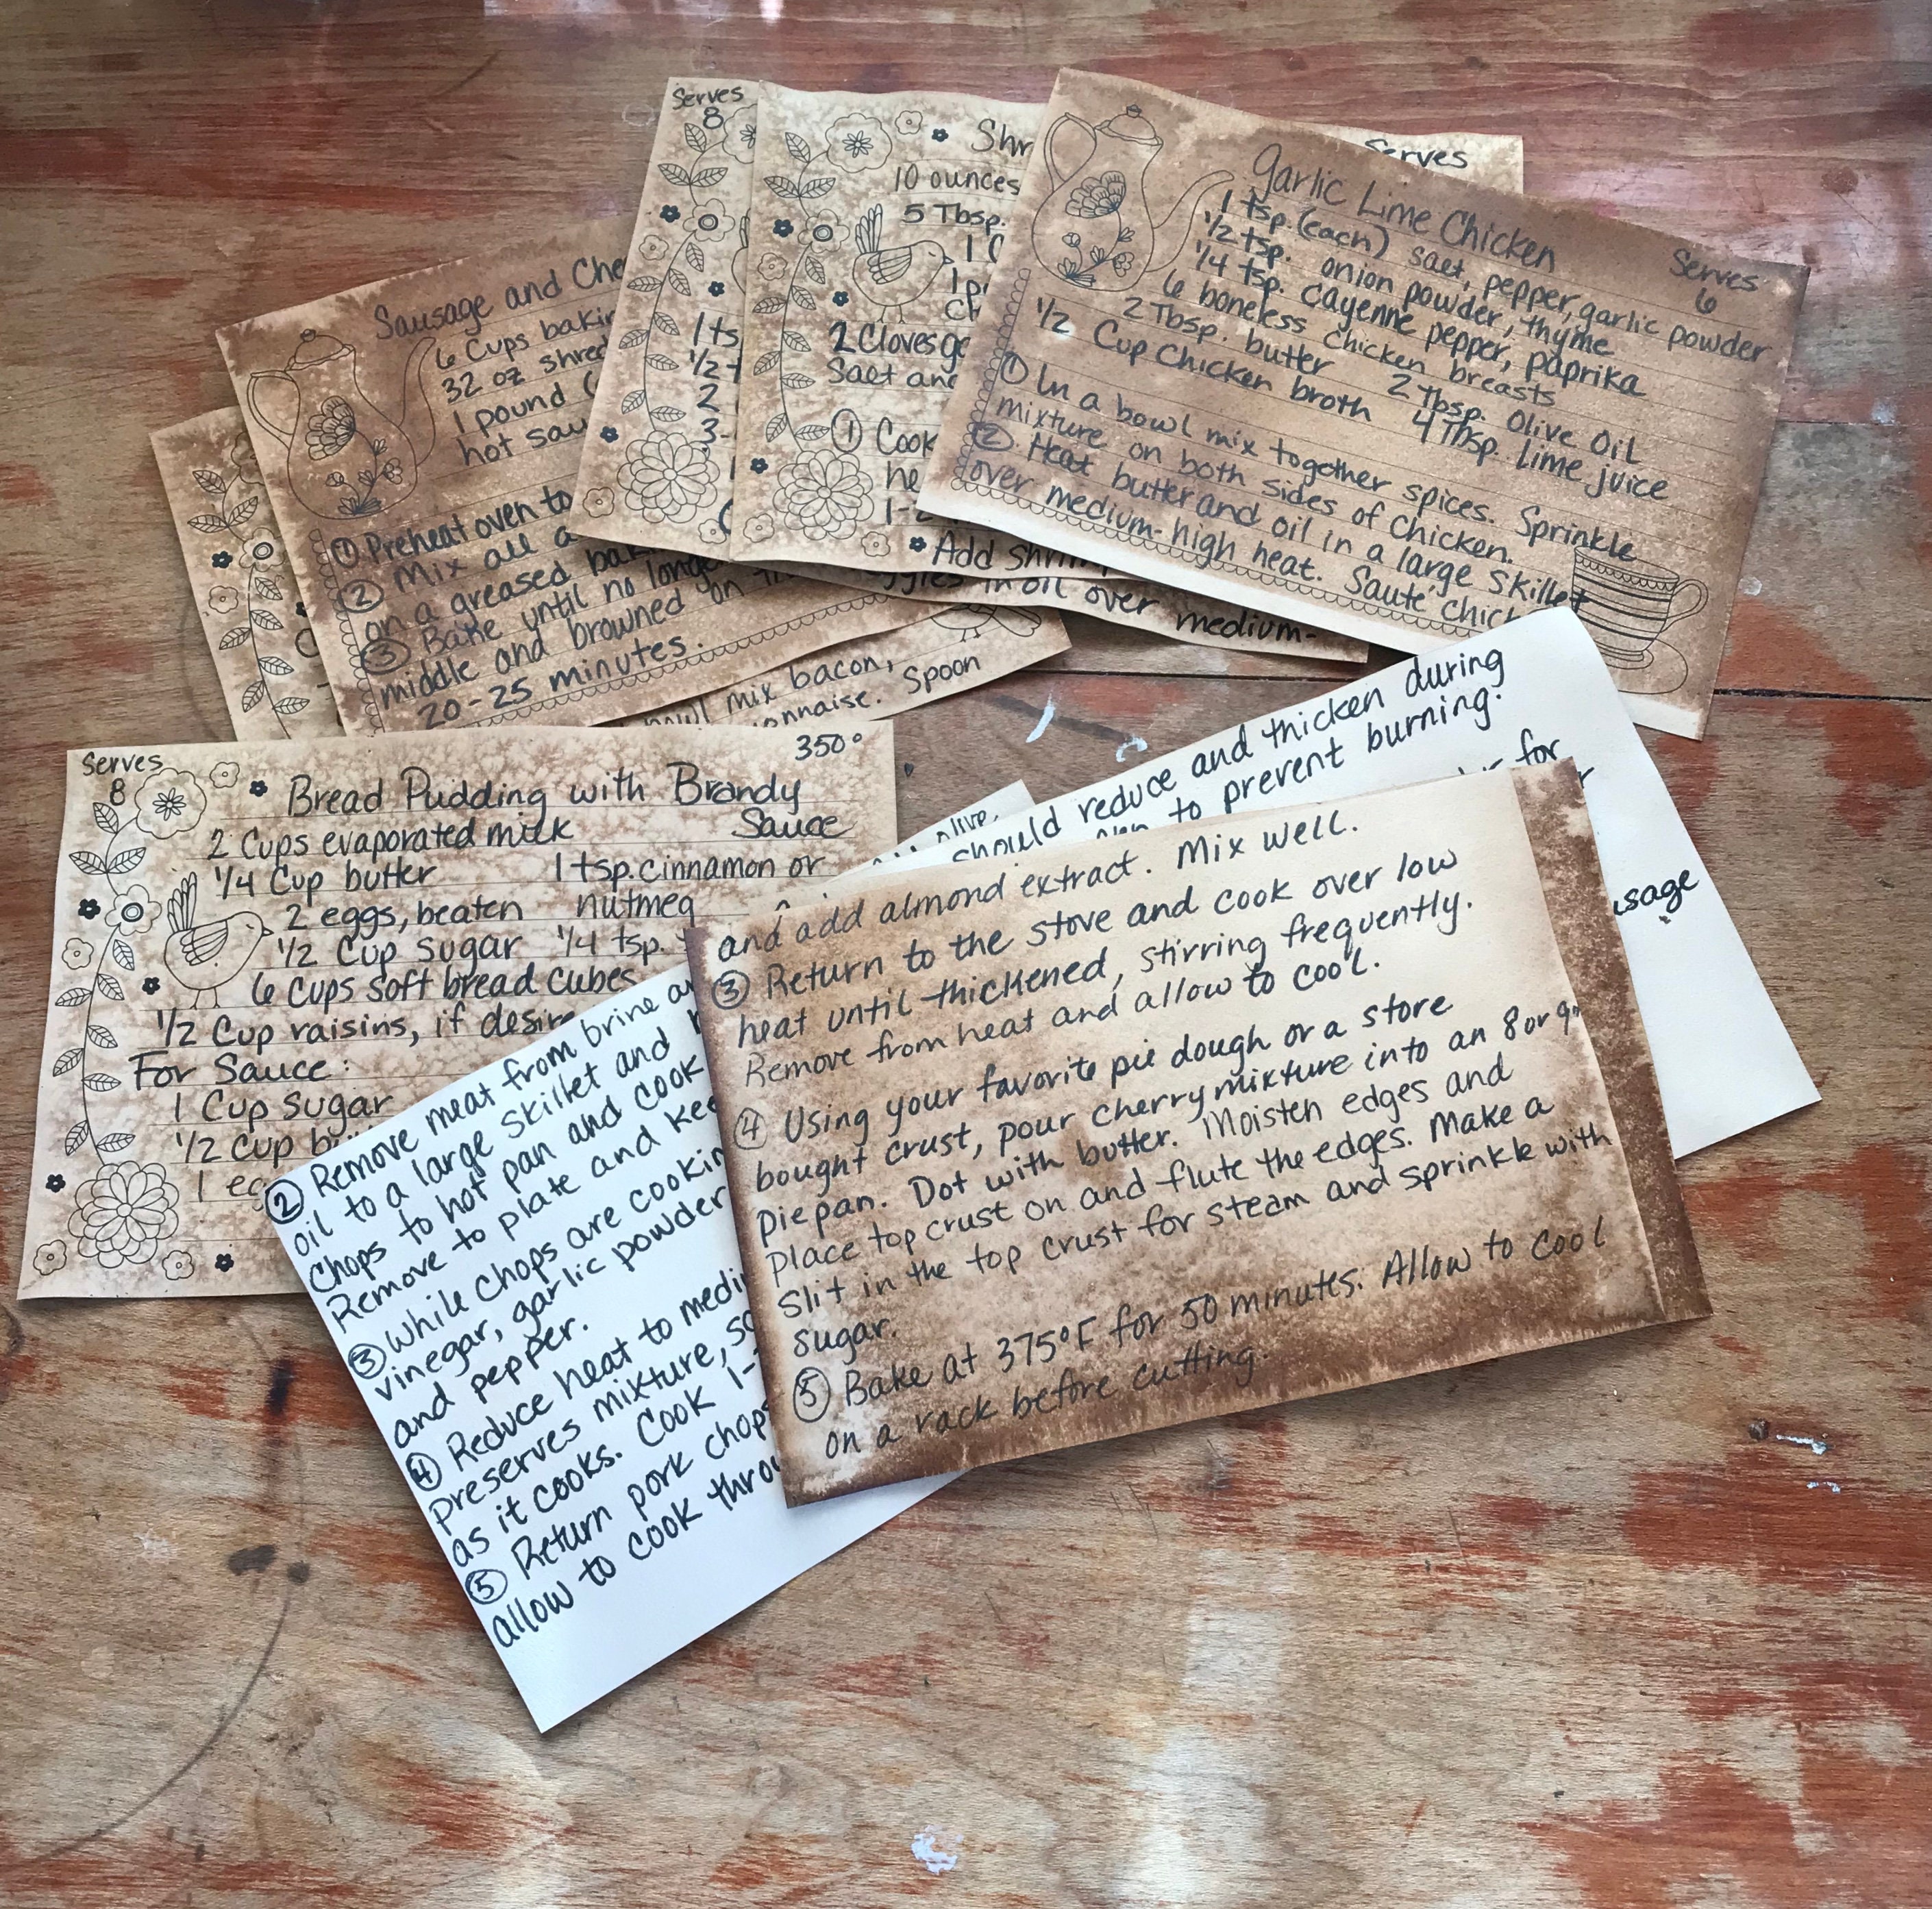 Serves
8
Shr
10 ounces
5 Tbsp.
1 C
2 Cloves
Salt and
① Cook
he
1-2
Add shrim
Serves
Garlic Lime Chicken
Serves
6
1 tsp. (each) salt, pepper, garlic powder
1/2 tsp. onion powder, thyme
1/4 tsp. cayenne pepper, paprika
6 boneless chicken breasts
2 Tbsp. butter 2 Tbsp. Olive Oil
1/2 Cup Chicken broth 4 Tbsp. Lime juice
① In a bowl mix together spices. Sprinkle
mixture on both sides of chicken.
② Heat butter and oil in a large skillet
over medium-high heat. Sauté chick
in oil over medium-
Sausage and Che
6 Cups bakin
32 oz shred
1 pound (
hot sau
① Preheat oven to
② Mix all a
on a greased baki
③ Bake until no longe
middle and browned on
20-25 minutes.
1 ts
1/2 t
2
3-
mix bacon,
onnaise. Spoon
Serves
8
350°
Bread Pudding with Brandy
Sauce
2 Cups evaporated milk
1/4 Cup butter 1 tsp. cinnamon or
2 eggs, beaten nutmeg
1/2 Cup sugar 1/4 tsp.
6 Cups soft bread cubes
1/2 Cup raisins, if desire
For Sauce:
1 Cup sugar
1/2 Cup
olive
should reduce and thicken during
to prevent burning.
for
usage
② Remove meat from brine a
oil to a large skillet and
Chops to hot pan and cook
Remove to plate and kee
③ While chops are cookin
vinegar, garlic powder
and pepper.
④ Reduce heat to medi
preserves mixture, sc
as it cooks. Cook 1-
⑤ Return pork chops
allow to cook throu
and add almond extract. Mix well.
③ Return to the stove and cook over low
heat until thickened, stirring frequently.
Remove from heat and allow to cool.
④ Using your favorite pie dough or a store
bought crust, pour cherry mixture into an 8 or 9"
pie pan. Dot with butter. Moisten edges and
place top crust on and flute the edges. Make a
slit in the top crust for steam and sprinkle with
sugar.
⑤ Bake at 375°F for 50 minutes. Allow to cool
on a rack before cutting.